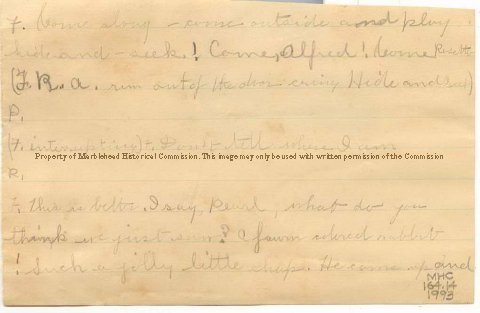 F. Come along - come outside and play
hide and - seek! Come, Alfred! Come Rosetta
(F. R. a. run out of the door crying Hide and Seek)
P.
(F. interrupting) F. Don't tell where I am
Property of Marblehead Historical Commission. This image may only be used with written permission of the Commission
R.
F. This is better. I say, Pearl, what do you
think we just saw? a fawn colored rabbit
! Such a jolly little chap. He came up and
MHC
164.14
1993